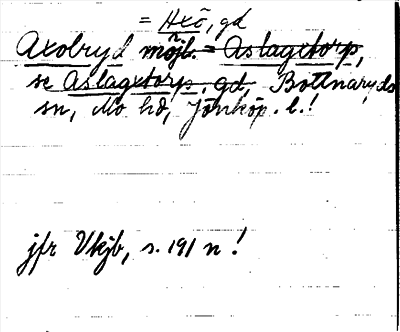 = Hxö, gd
Axolryd möjl. = Aslagxtorp,
se Aslagxtorp, gd, Bottnaryds
sn, Mo hd, Jönköp. l.!
jfr Vkjb, s. 191 n!